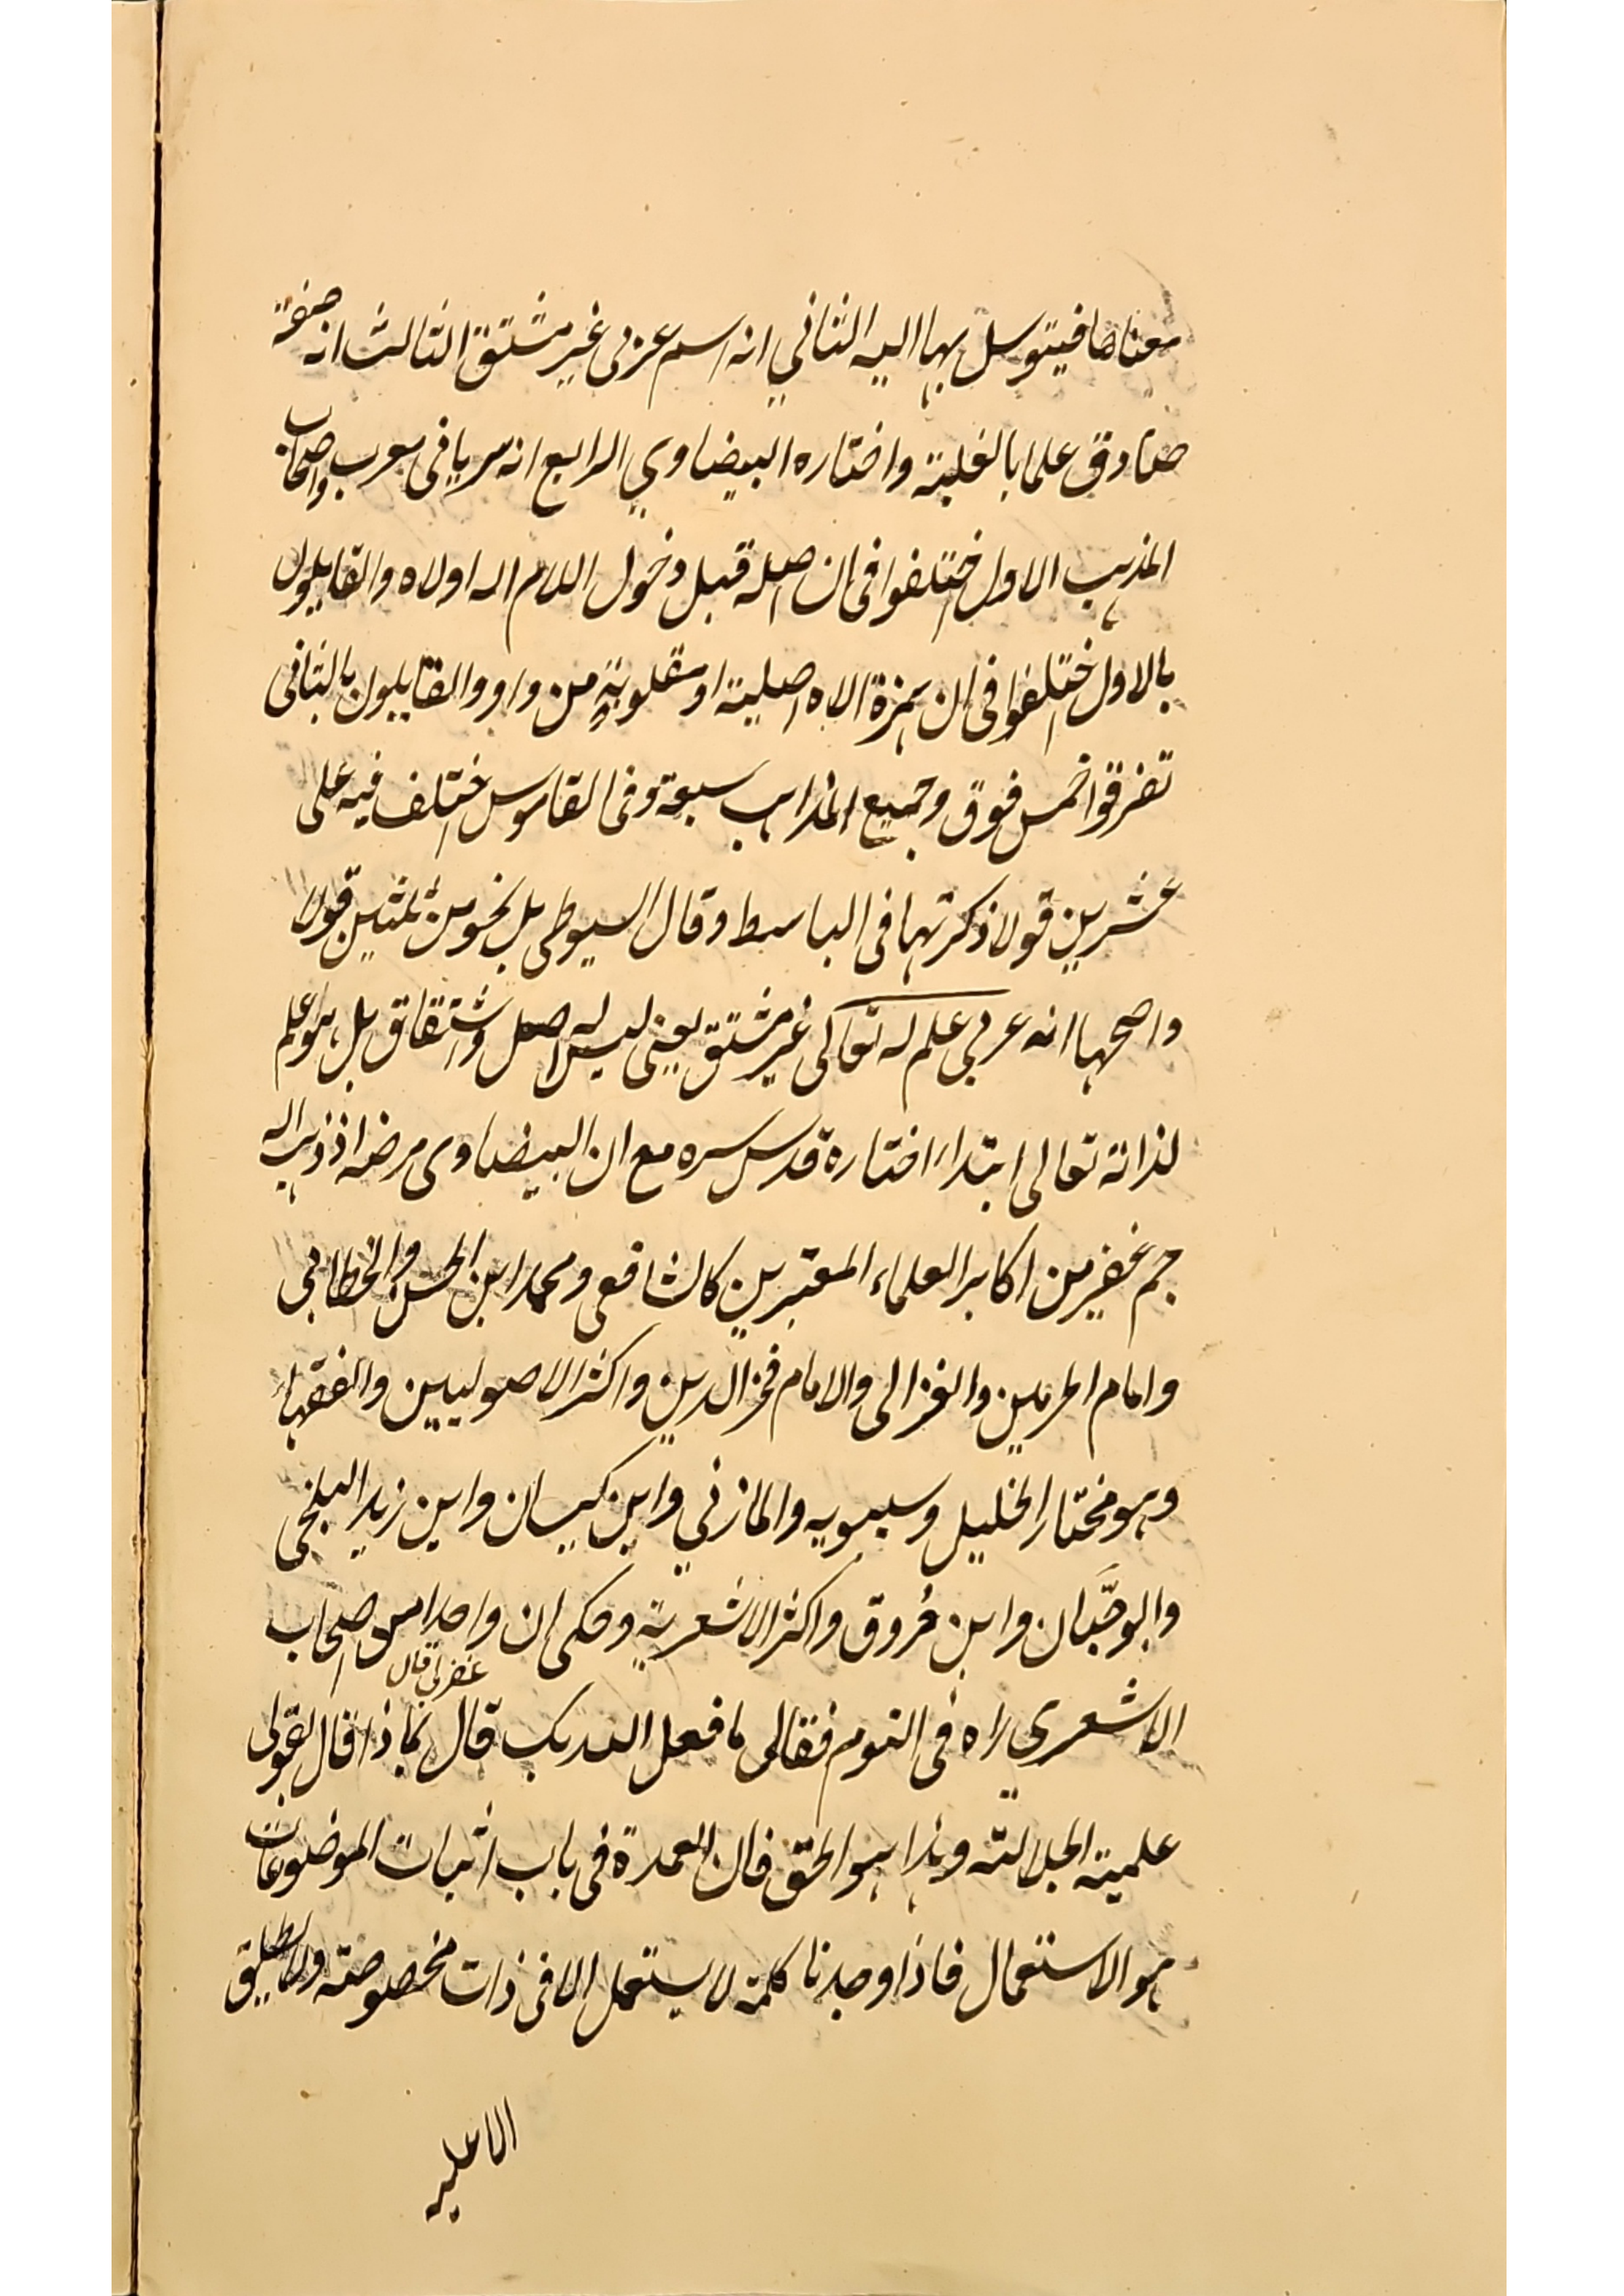 معناها فيتوسل بها اليه الثاني انه اسم عربي غير مشتق الثالث انه صفة
صادق علما بالغلبة واختاره البيضاوي الرابع انه سرياني معرب واصحاب
المذهب الاول اختلفوا في ان اصله قبل دخول اللام اله او لاه والقايلون
بالاول اختلفوا في ان همزة الاه اصلية او مقلوبة من واو والقايلون بالثاني
تفرقوا خمس فوق وجميع المذاهب سبعة وفي القاموس اختلف فيه على
عشرين قولا ذكرتها في الباسط وقال السيوطي بل نحو من ثلثين قولا
واصحها انه عربي علم له تعالى غير مشتق يعنى ليس له اصل واشتقاق بل هو علم
لذاته تعالى ابتداء اختاره قدس سره مع ان البيضاوى مرضه اذ ذهب اليه
جم غفير من اكابر العلماء المعتبرين كالشافعي ومحمد ابن الحسن والخطابي
وامام الحرمين والغزالى والامام فخر الدين واكثر الاصوليين والفقهاء
وهو مختار الخليل وسيبويه والمازني وابن كيسان وابن زيد البلخي
وابو حَبَّان وابن مُروق واكثر الاشعرية وحكى ان واحدا من اصحاب
الاشعري راه في النوم فقال له ما فعل الله بك قال غفر لي قال بماذا قال بقولى
علمية الجلالة وهذا هو الحق فان العمدة في باب اثبات الموضوعات
هو الاستعمال فاذا وجدنا كلمة لا يستعمل الا في ذات مخصوصة ولا يطلق
الا عليه